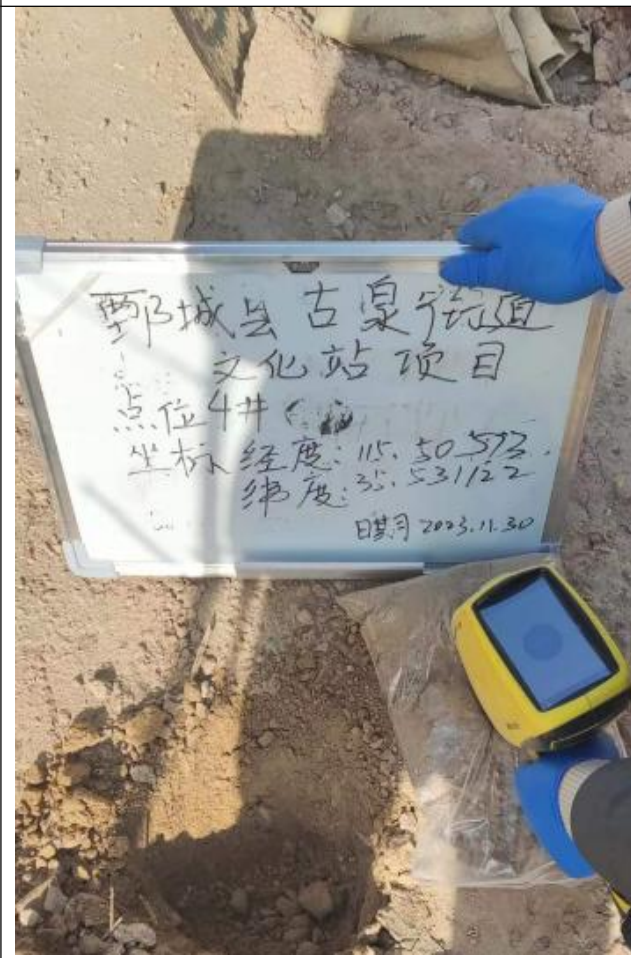 鄄城县古泉街道
文化站项目
点位4#
坐标经度:115.50593.
纬度:35.531122
日期 2023.11.30